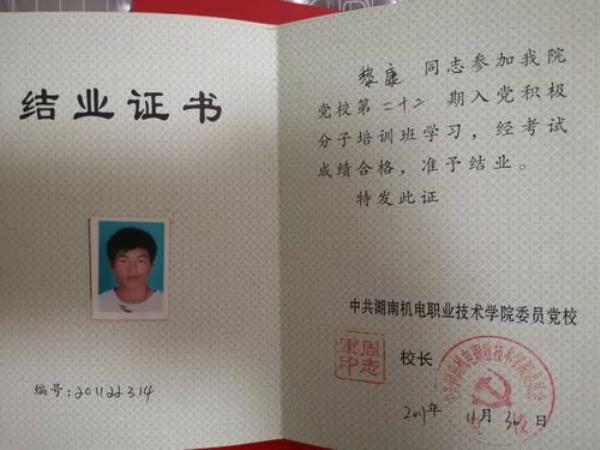 结业证书
编号：201122314
黎康 同志参加我院
党校第二十二期入党积极
分子培训班学习，经考试
成绩合格，准予结业。
特发此证
中共湖南机电职业技术学院委员党校
校长
周志
军印
2011年 11月 30日